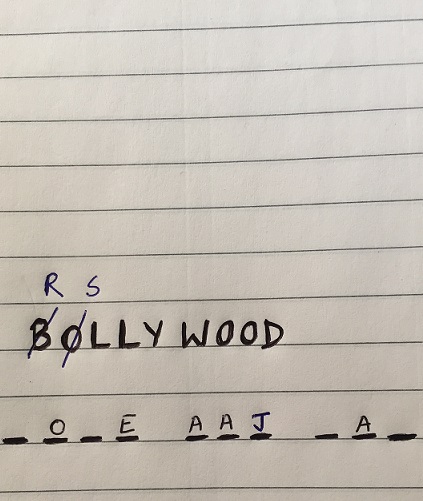 R S
BOLLYWOOD
_ O _ E A A J _ A _